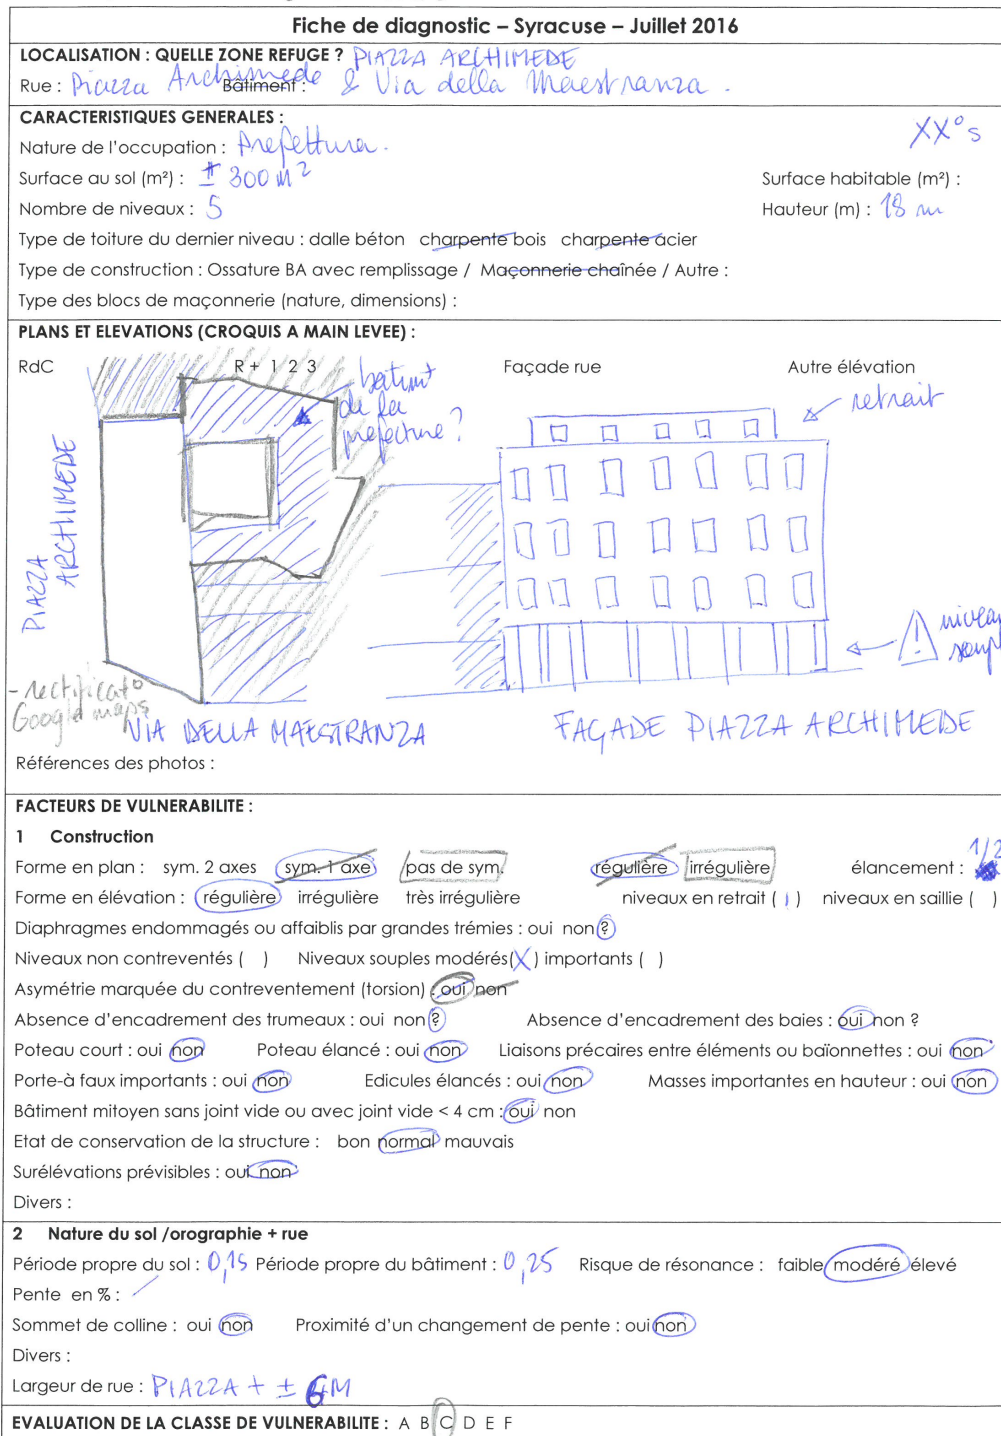 Fiche de diagnostic – Syracuse – Juillet 2016
LOCALISATION : QUELLE ZONE REFUGE ? PIAZZA ARCHIMEDE
Rue : Piazza Archimede Bâtiment : & Via della Maestranza .
CARACTERISTIQUES GENERALES :
XX° s
Nature de l'occupation : Prefettura.
Surface au sol (m²) : ± 300 m² Surface habitable (m²) :
Nombre de niveaux : 5 Hauteur (m) : 18 m
Type de toiture du dernier niveau : dalle béton charpente bois charpente acier
Type de construction : Ossature BA avec remplissage / Maçonnerie chaînée / Autre :
Type des blocs de maçonnerie (nature, dimensions) :
PLANS ET ELEVATIONS (CROQUIS A MAIN LEVEE) :
RdC R + 1 2 3 Façade rue Autre élévation
batiment de la prefecture ?
retrait
PIAZZA ARCHIMEDE
niveau souple
- rectificato Google maps
VIA DELLA MAESTRANZA FAÇADE PIAZZA ARCHIMEDE
Références des photos :
FACTEURS DE VULNERABILITE :
1 Construction
Forme en plan : sym. 2 axes sym. 1 axe pas de sym. régulière irrégulière élancement : 1/2
Forme en élévation : régulière irrégulière très irrégulière niveaux en retrait ( 1 ) niveaux en saillie ( )
Diaphragmes endommagés ou affaiblis par grandes trémies : oui non ?
Niveaux non contreventés ( ) Niveaux souples modérés (X) importants ( )
Asymétrie marquée du contreventement (torsion) : oui non
Absence d'encadrement des trumeaux : oui non ? Absence d'encadrement des baies : oui non ?
Poteau court : oui non Poteau élancé : oui non Liaisons précaires entre éléments ou baïonnettes : oui non
Porte-à faux importants : oui non Edicules élancés : oui non Masses importantes en hauteur : oui non
Bâtiment mitoyen sans joint vide ou avec joint vide < 4 cm : oui non
Etat de conservation de la structure : bon normal mauvais
Surélévations prévisibles : oui non
Divers :
2 Nature du sol /orographie + rue
Période propre du sol : 0,15 Période propre du bâtiment : 0,25 Risque de résonance : faible modéré élevé
Pente en % :
Sommet de colline : oui non Proximité d'un changement de pente : oui non
Divers :
Largeur de rue : PIAZZA + ± 6M
EVALUATION DE LA CLASSE DE VULNERABILITE : A B C D E F